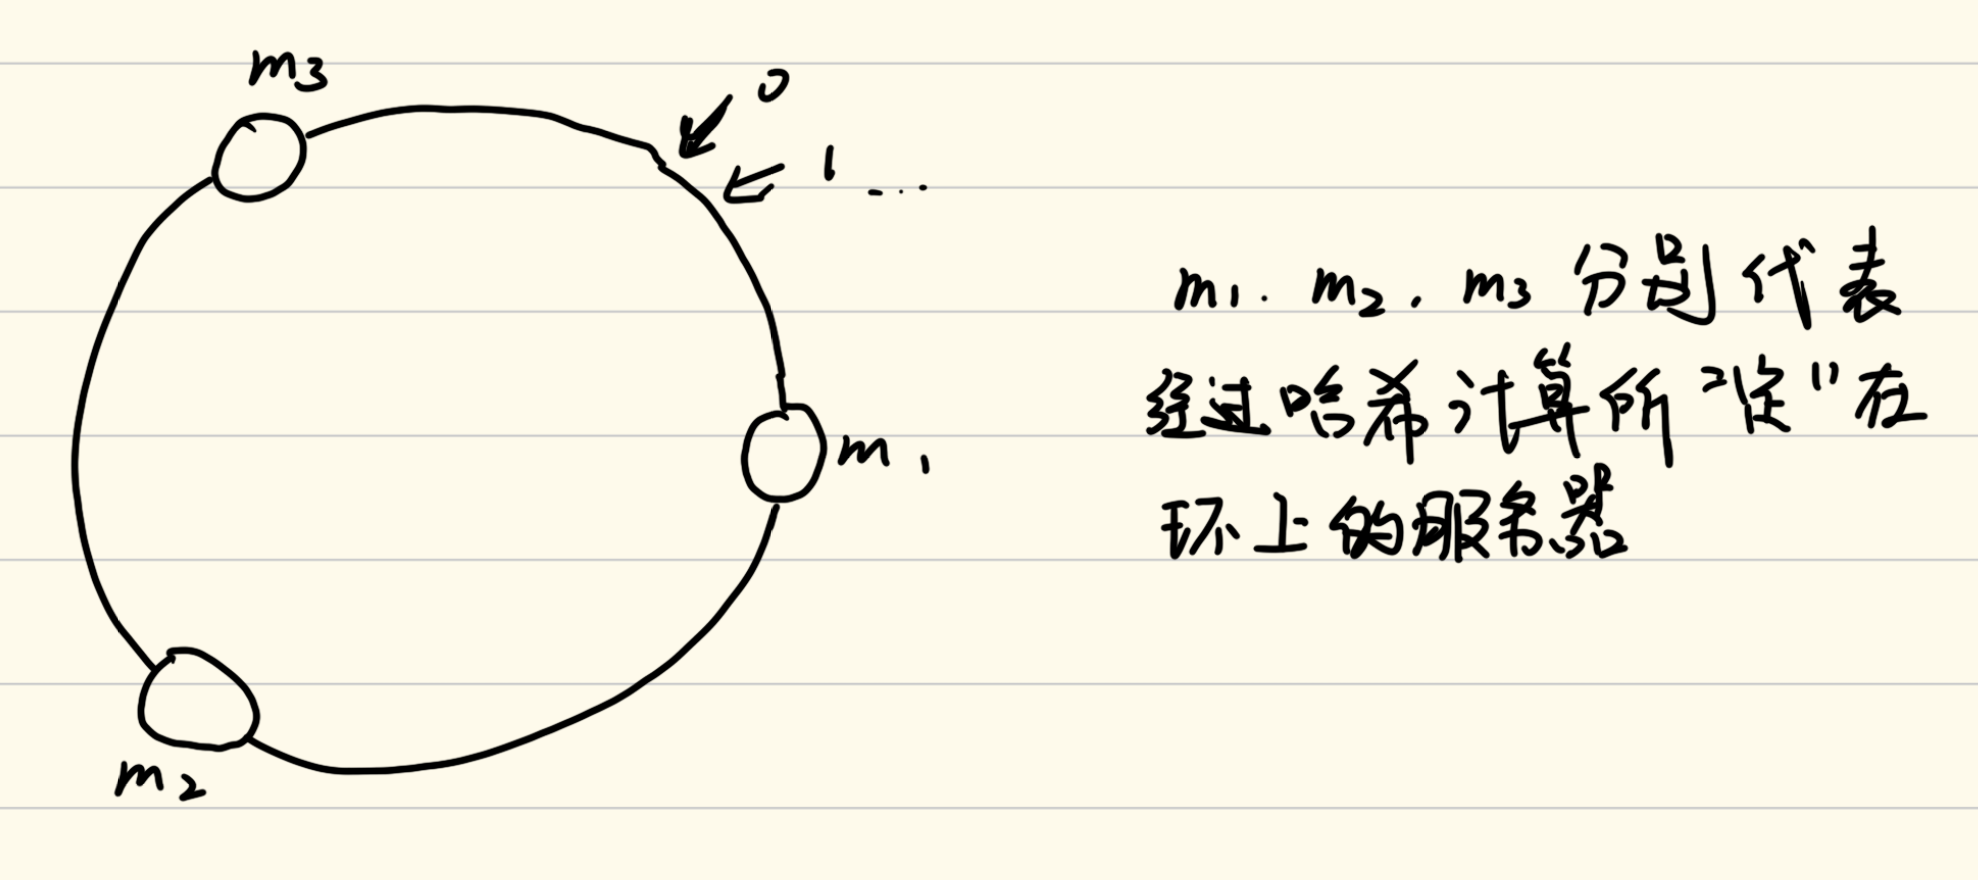 m3
0
1 ....
m1
m2
m1. m2. m3 分别代表
经过哈希计算所"定"在
环上的服务器